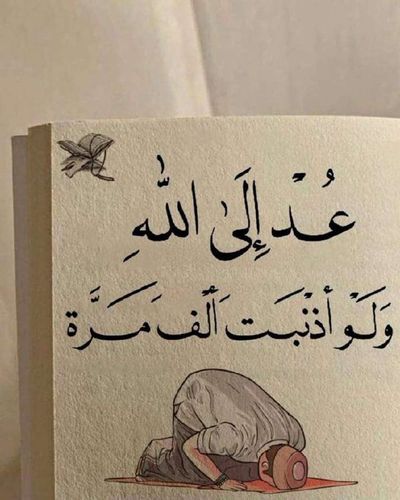 عُـدْ إِلَىٰ اللّٰهِ
وَلَـوْ أذْنَبَـت أَلْـفَ مَـرَّة